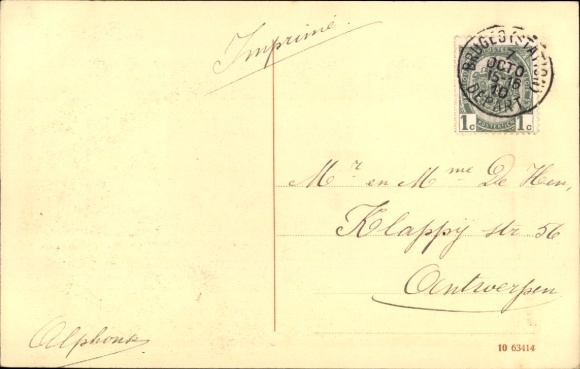 Imprimé
BRUGES (STATION)
7
OCTO
15-16
10
DEPART
1c 1c
POSTERIJEN
Mr en Mme De Hen,
Klappij str 56
Antwerpen
Alphons
10 63414